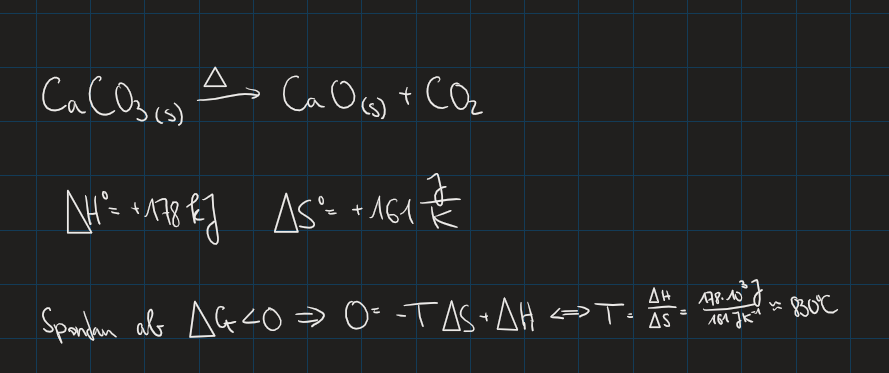 CaCO₃(s) —Δ→ CaO(s) + CO₂
ΔH° = +178 kJ ΔS° = +161 J/K
Spontan ab ΔG<0 ⇒ 0 = -TΔS + ΔH ⟺ T = ΔH/ΔS = 178·10³J/161JK⁻¹ ≈ 830°C